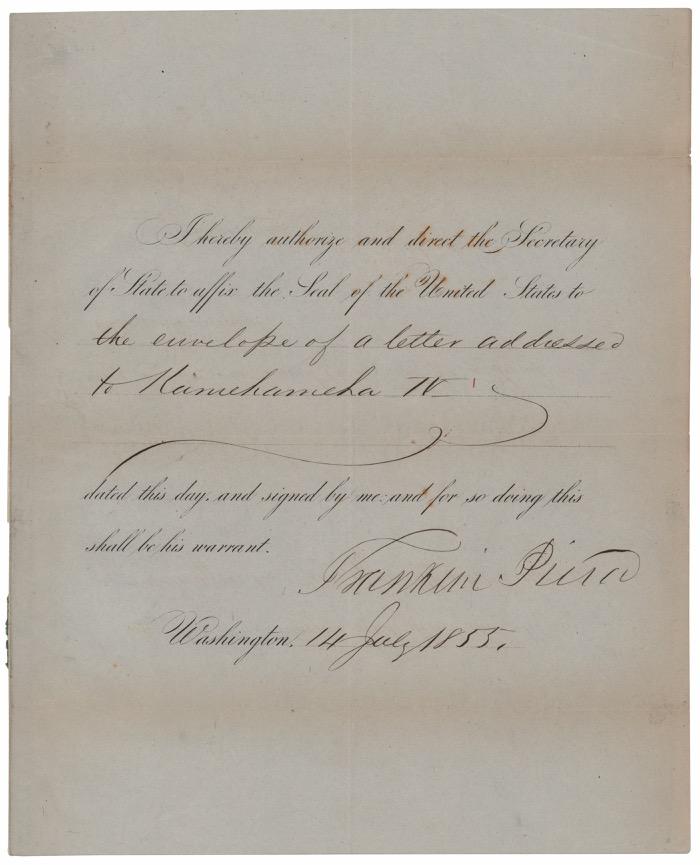 I hereby authorize and direct the Secretary
of State to affix the Seal of the United States to
the envelope of a letter addressed
to Kamehameha IV
dated this day, and signed by me: and for so doing this
shall be his warrant.
Franklin Pierce
Washington, 14 July 1855.